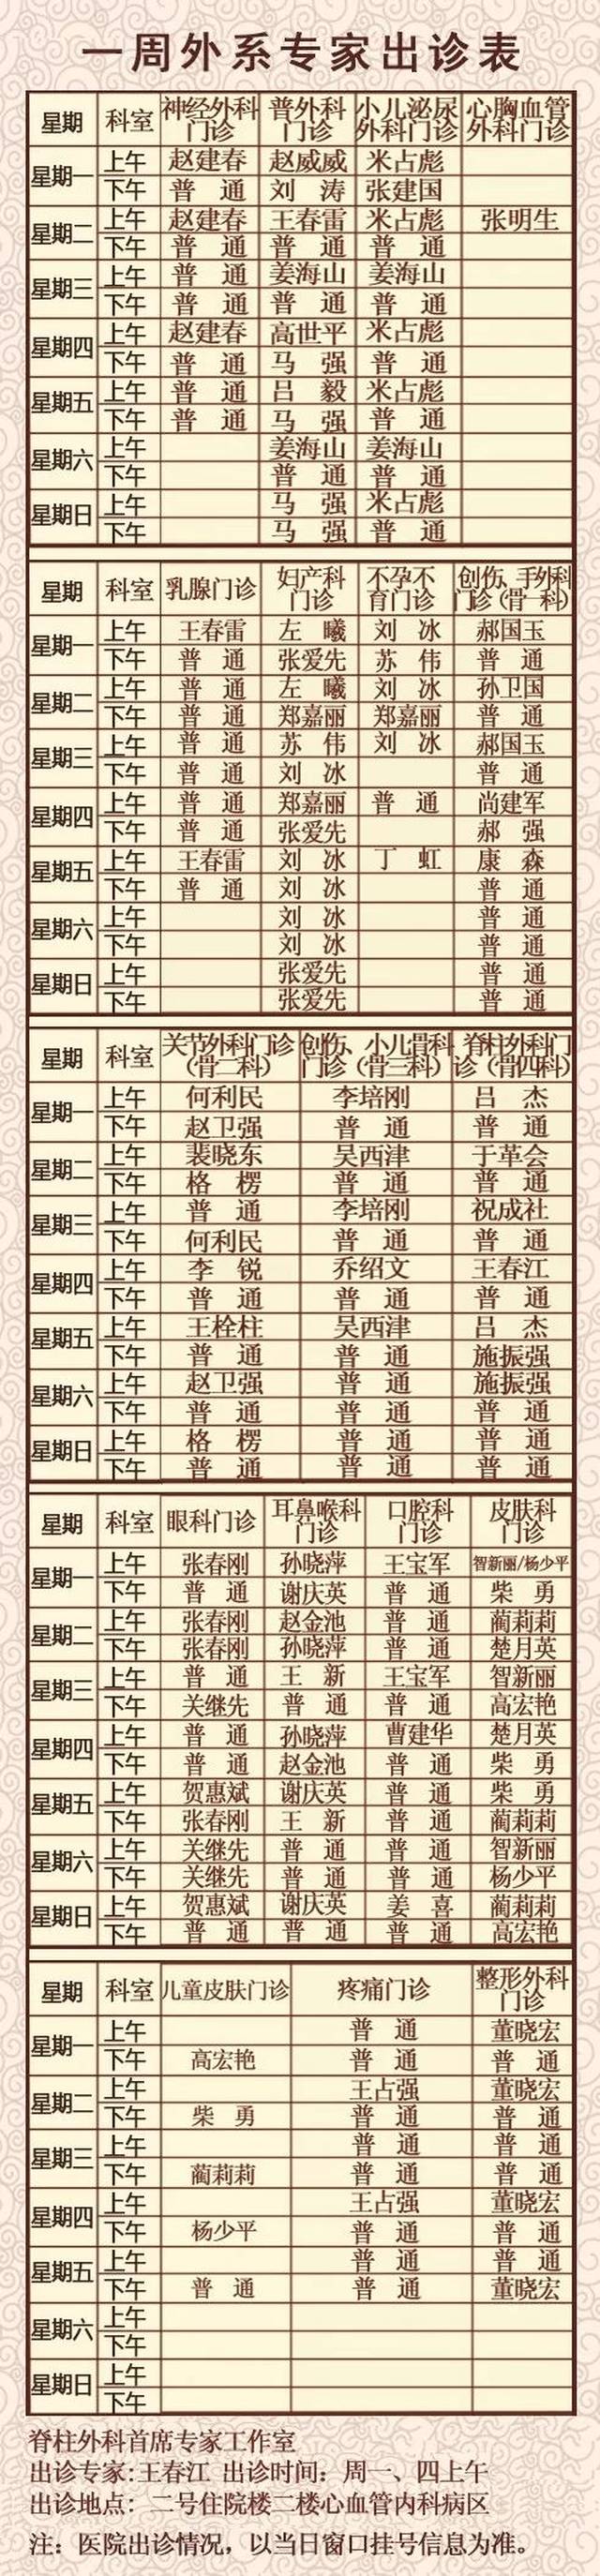 一周外系专家出诊表
星期 科室 神经外科门诊 普外科门诊 小儿泌尿外科门诊 心胸血管外科门诊
星期一 上午 赵建春 赵威威 米占彪
下午 普通 刘涛 张建国
星期二 上午 赵建春 王春雷 米占彪 张明生
下午 普通 普通 普通
星期三 上午 普通 姜海山 姜海山
下午 普通 普通 普通
星期四 上午 赵建春 高世平 米占彪
下午 普通 马强 普通
星期五 上午 普通 吕毅 米占彪
下午 普通 马强 普通
星期六 上午 姜海山 姜海山
下午 普通 普通
星期日 上午 马强 米占彪
下午 马强 普通
星期 科室 乳腺门诊 妇产科门诊 不孕不育门诊 创伤、手外科门诊（骨一科）
星期一 上午 王春雷 左曦 刘冰 郝国玉
下午 普通 张爱先 苏伟 普通
星期二 上午 普通 左曦 刘冰 孙卫国
下午 普通 郑嘉丽 郑嘉丽 普通
星期三 上午 普通 苏伟 刘冰 郝国玉
下午 普通 刘冰 普通
星期四 上午 普通 郑嘉丽 普通 尚建军
下午 普通 张爱先 郝强
星期五 上午 王春雷 刘冰 丁虹 康森
下午 普通 刘冰 普通
星期六 上午 刘冰 普通
下午 刘冰 普通
星期日 上午 张爱先 普通
下午 张爱先 普通
星期 科室 关节外科门诊（骨二科） 创伤、小儿骨科门诊（骨三科） 脊柱外科门诊（骨四科）
星期一 上午 何利民 李培刚 吕杰
下午 赵卫强 普通 普通
星期二 上午 裴晓东 吴西津 于革会
下午 格楞 普通 普通
星期三 上午 普通 李培刚 祝成社
下午 何利民 普通 普通
星期四 上午 李锐 乔绍文 王春江
下午 普通 普通 普通
星期五 上午 王栓柱 吴西津 吕杰
下午 普通 普通 施振强
星期六 上午 赵卫强 普通 施振强
下午 普通 普通 普通
星期日 上午 格楞 普通 普通
下午 普通 普通 普通
星期 科室 眼科门诊 耳鼻喉科门诊 口腔科门诊 皮肤科门诊
星期一 上午 张春刚 孙晓萍 王宝军 智新丽/杨少平
下午 普通 谢庆英 普通 柴勇
星期二 上午 张春刚 赵金池 普通 蔺莉莉
下午 张春刚 孙晓萍 普通 楚月英
星期三 上午 普通 王新 王宝军 智新丽
下午 关继先 普通 普通 高宏艳
星期四 上午 普通 孙晓萍 曹建华 楚月英
下午 普通 赵金池 普通 柴勇
星期五 上午 贺惠斌 谢庆英 普通 柴勇
下午 张春刚 王新 普通 蔺莉莉
星期六 上午 关继先 普通 普通 智新丽
下午 关继先 普通 普通 杨少平
星期日 上午 贺惠斌 谢庆英 姜喜 蔺莉莉
下午 普通 普通 普通 高宏艳
星期 科室 儿童皮肤门诊 疼痛门诊 整形外科门诊
星期一 上午 普通 董晓宏
下午 高宏艳 普通 普通
星期二 上午 王占强 董晓宏
下午 柴勇 普通 普通
星期三 上午 普通 普通
下午 蔺莉莉 普通 普通
星期四 上午 王占强 董晓宏
下午 杨少平 普通 普通
星期五 上午 普通 普通
下午 普通 普通 董晓宏
星期六 上午
下午
星期日 上午
下午
脊柱外科首席专家工作室
出诊专家:王春江 出诊时间：周一、四上午
出诊地点：二号住院楼二楼心血管内科病区
注：医院出诊情况，以当日窗口挂号信息为准。